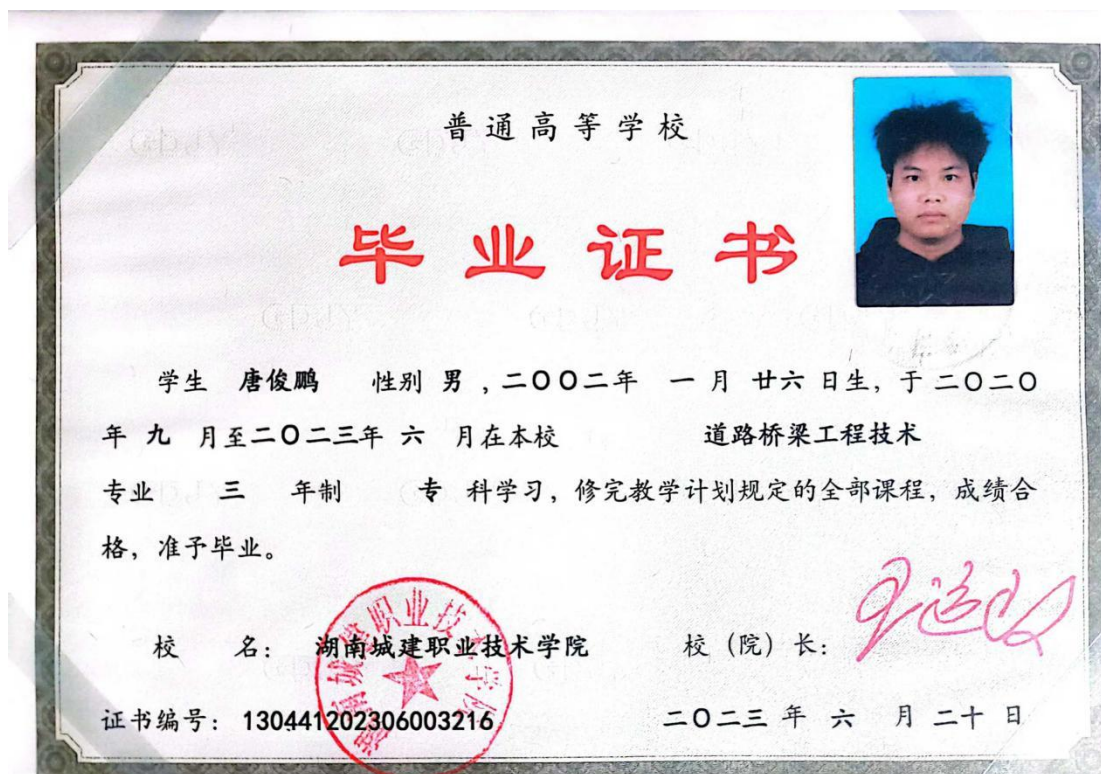 普通高等学校
毕业证书
学生 唐俊鹏 性别 男 ,二〇〇二年 一 月 廿六 日生，于 二〇二〇
年 九 月至二〇二三年 六 月在本校 道路桥梁工程技术
专业 三 年制 专 科学习，修完教学计划规定的全部课程，成绩合
格，准予毕业。
校 名： 湖南城建职业技术学院 校（院）长：
湖南城建职业技术学院
证书编号： 130441202306003216 二〇二三 年 六 月 二十 日